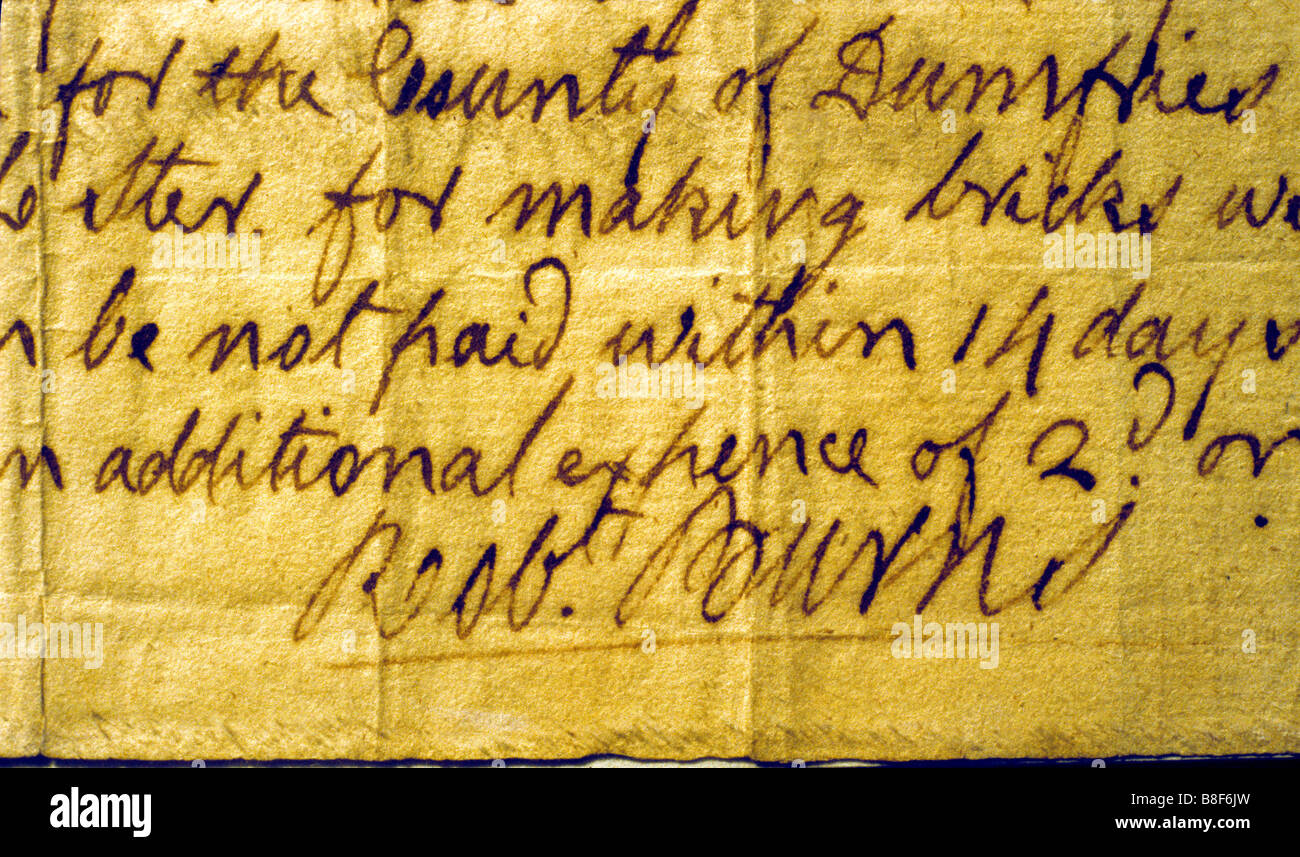 for the County of Dumfries
for making bricks
be not paid within 14 days
additional expence of 2d. or
Robt. Burns
alamy
Image ID: B8F6JW
www.alamy.com